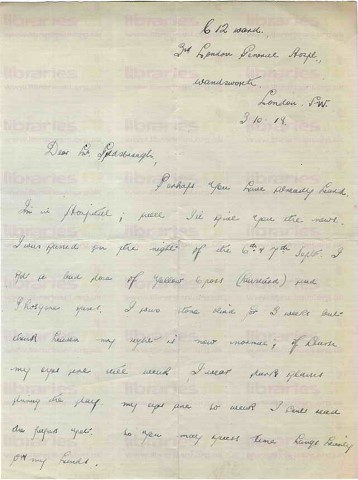 C 12 ward.
3rd London General Hospl.,
Wandsworth.
London. S.W.
3.10.18.
Dear Mr Goldsbrough,
Perhaps you have already heard
I'm in Hospital, well I'll give you the news.
I was gassed on the night of the 6th & 7th Sept. I
got a bad dose of Yellow Cross (Mustard) and
Phosgene gas. I was stone blind for 3 weeks but
thank heaven my sight is now normal, of course
my eyes are still weak I wear dark glasses
during the day. my eyes are so weak I can't read
the papers yet. so you may guess time hangs heavily
on my hands.
libraries